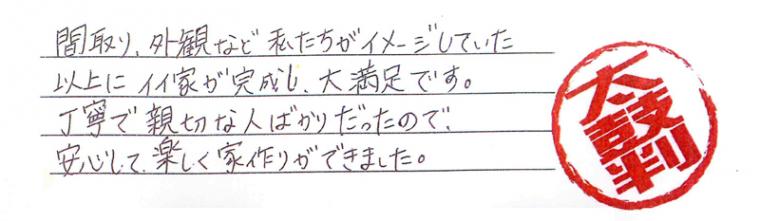 間取り、外観など私たちがイメージしていた
以上にイイ家が完成し、大満足です。
丁寧で親切な人ばかりだったので、
安心して、楽しく家作りができました。
太鼓判